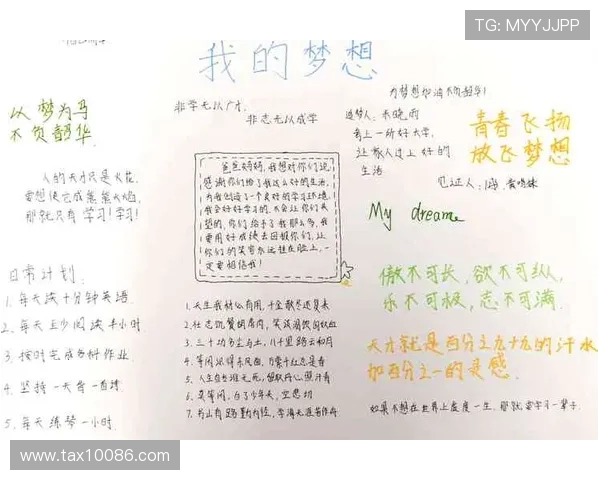 TG: MYYJJPP
我的梦想
以梦为马
不负韶华
人的天才只是火花,
要想使它成熊熊火焰,
那就只有学习!学习!
日常计划
1. 每天读十分钟英语.
2. 每天至少阅读半小时.
3. 按时完成各科作业
4. 坚持一天背一首诗
5. 每天练琴一小时.
非学无以广才,
非志无以成学
爸爸妈妈,我想对你们说,
感谢你们给了我这么好的生活,
为我创造了一个良好的学习环境.
我会好好学习的,不会让你们失
望的,你们给予了我那么多,我
要用好成绩去回报你们,让
你们的笑容永远挂在脸上,一
定要相信我!
1. 天生我材必有用,千金散尽还复来
2. 壮志饥餐胡虏肉,笑谈渴饮匈奴血
3. 三十功名尘与土,八千里路云和月
4. 等闲识得东风面,万紫千红总是春
5. 人生自古谁无死,留取丹心照汗青
6. 莫等闲,白了少年头,空悲切
7. 书山有路勤为径,学海无涯苦作舟
为梦想加油不负韶华!
追梦人:
考上一所好大学,
让家人过上好的
生活
见证人:
青春飞扬
放飞梦想
My dream
傲不可长,欲不可纵,
乐不可极,志不可满.
天才就是百分之九十九的汗水
加百分之一的灵感.
如果不想在世界上虚度一生,那就要学习一辈子.
www.tax10086.com